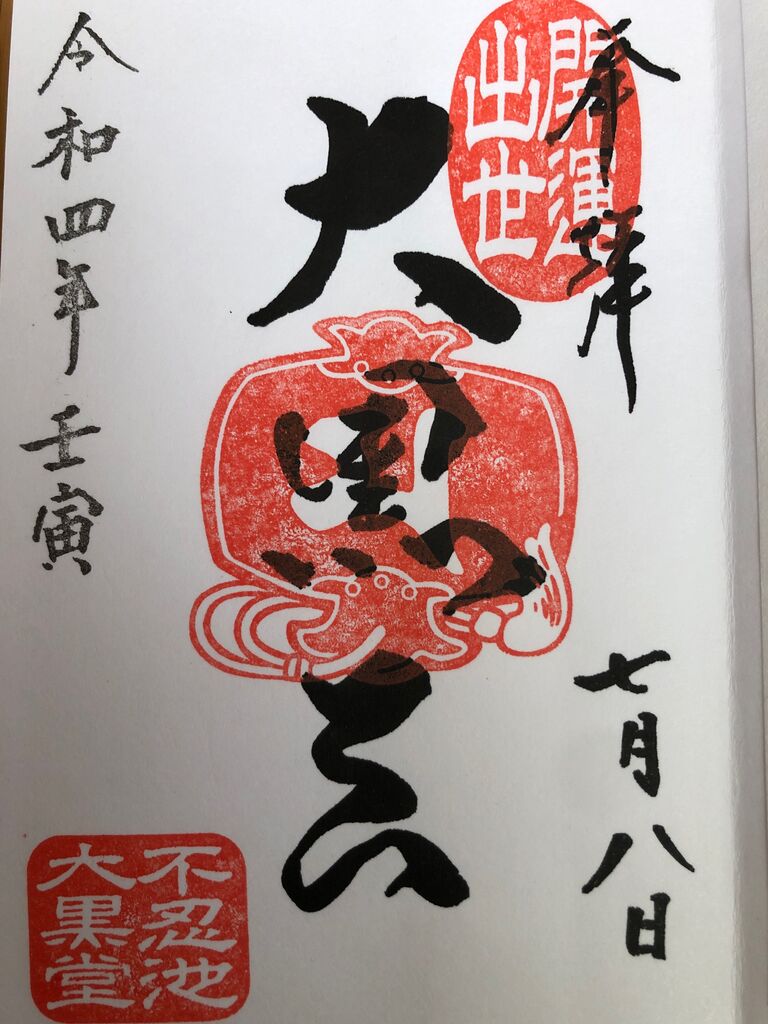 奉拝
開運
出世
七月八日
大黒天
令和四年壬寅
不忍池
大黒堂